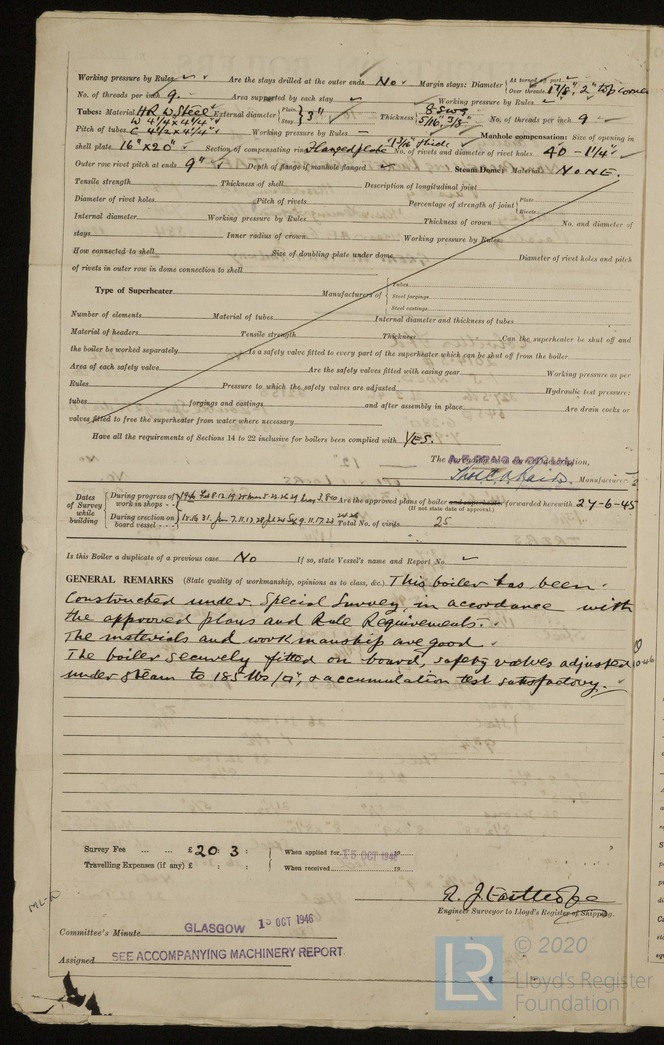 Working pressure by Rules ✓ Are the stays drilled at the outer ends No Margin stays: Diameter { At turned off part, Over threads 1 7/8", 2" top corner
No. of threads per inch 9. Area supported by each stay Working pressure by Rules
Tubes: Material H R W Steel External diameter { Plain Stay } 3" Thickness { 8 SWG 5/16", 3/8" No. of threads per inch 9
Pitch of tubes W 4 1/4 x 4 1/4" C 4 1/2 x 4 1/4" Working pressure by Rules — Manhole compensation: Size of opening in
shell plate 16" x 20" Section of compensating ring Flanged plate 1 3/16" thick No. of rivets and diameter of rivet holes 40 - 1 1/4"
Outer row rivet pitch at ends 9" Depth of flange if manhole flanged Steam Dome: Material NONE.
Tensile strength Thickness of shell Description of longitudinal joint
Diameter of rivet holes Pitch of rivets Percentage of strength of joint { Plate Rivets
Internal diameter Working pressure by Rules Thickness of crown No. and diameter of
stays Inner radius of crown Working pressure by Rules
How connected to shell Size of doubling plate under dome Diameter of rivet holes and pitch
of rivets in outer row in dome connection to shell
Type of Superheater Manufacturers of { Tubes Steel forgings Steel castings
Number of elements Material of tubes Internal diameter and thickness of tubes
Material of headers Tensile strength Thickness Can the superheater be shut off and
the boiler be worked separately Is a safety valve fitted to every part of the superheater which can be shut off from the boiler
Area of each safety valve Are the safety valves fitted with easing gear Working pressure as per
Rules Pressure to which the safety valves are adjusted Hydraulic test pressure:
tubes forgings and castings and after assembly in place Are drain cocks or
valves fitted to free the superheater from water where necessary
Have all the requirements of Sections 14 to 22 inclusive for boilers been complied with YES.
The description,
Manufacturer
Dates of Survey while building { During progress of work in shops - - Are the approved plans of boiler and superheater forwarded herewith 27-6-45
(If not state date of approval.)
During erection on board vessel - - - Total No. of visits 25
Is this Boiler a duplicate of a previous case No If so, state Vessel's name and Report No.
GENERAL REMARKS (State quality of workmanship, opinions as to class, &c.) This boiler has been
constructed under Special Survey in accordance with
the approved plans and Rule Requirements.
The materials and workmanship are good.
The boiler securely fitted on board, safety valves adjusted
under steam to 185 lbs/□", & accumulation test satisfactory.
Survey Fee ... ... £ 20 : 3 : When applied for 15 OCT 1946 19
Travelling Expenses (if any) £ : : When received 19
Engineer Surveyor to Lloyd's Register of Shipping.
Committee's Minute GLASGOW 15 OCT 1946
Assigned SEE ACCOMPANYING MACHINERY REPORT.
LR © 2020
Lloyd's Register
Foundation